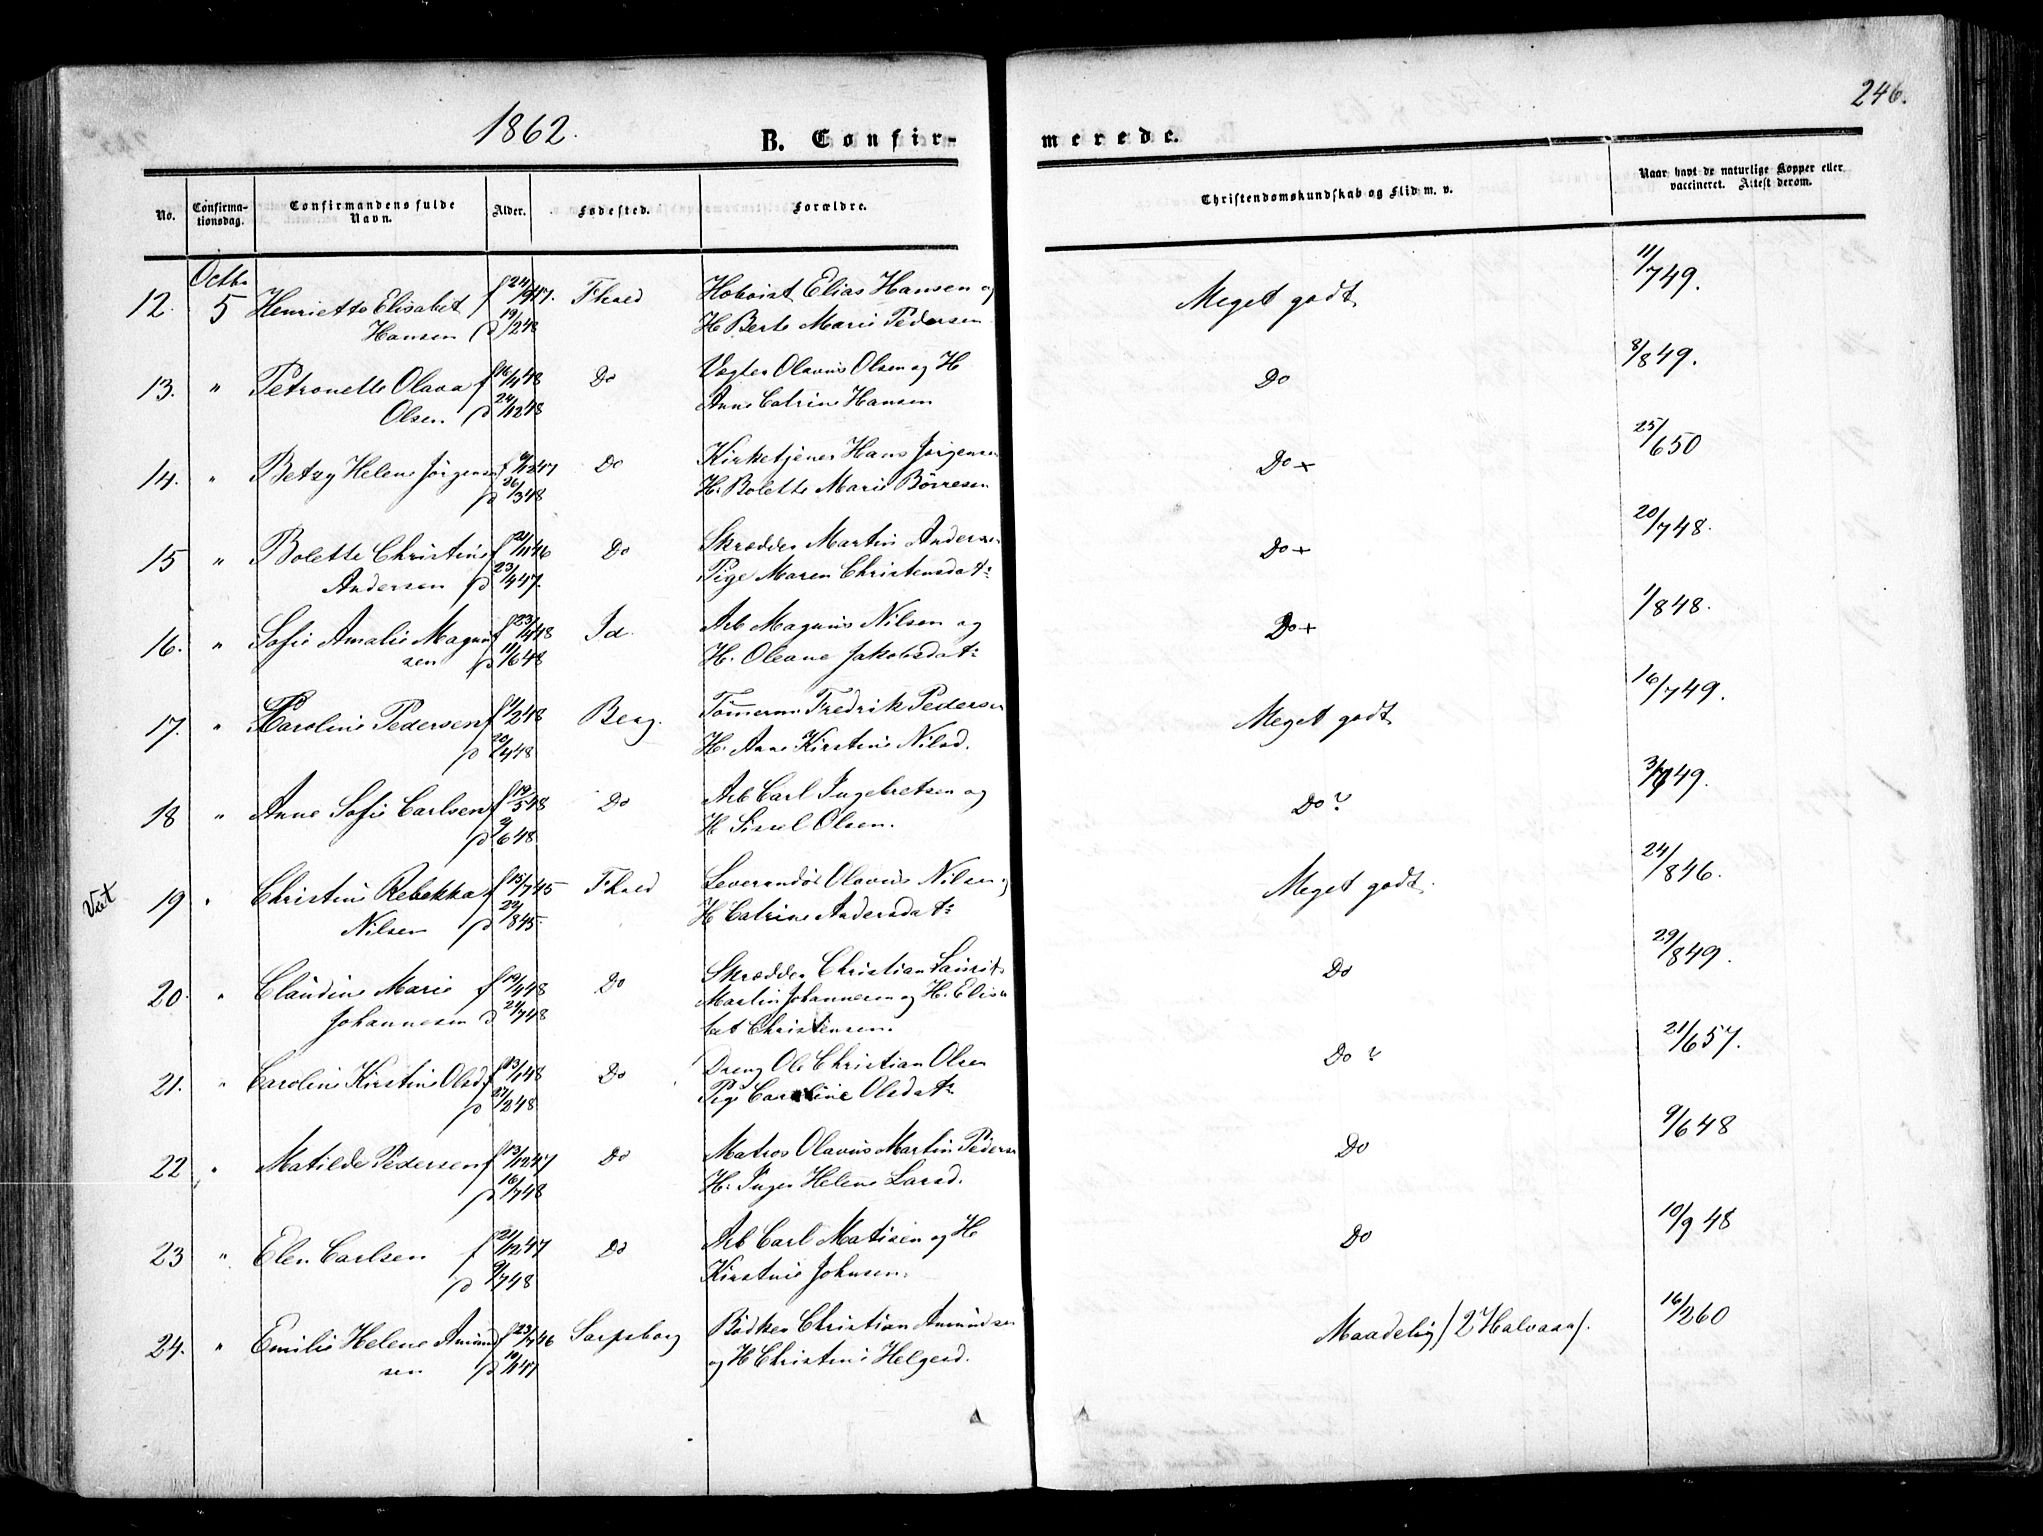 246.
1862.
B. Confir-
merede.
No.
Confirma-
tionsdag.
Confirmandens fulde
Navn.
Alder.
Fødested.
Forældre.
Christendomskundskab og Flid m. v.
Naar havt de naturlige Kopper eller
vaccineret. Attest derom.
Octbr
12. 5 Henriette Elisabet f 24/9 47. Fhald Hoboist Elias Hansen og Meget godt 11/7 49.
Hansen d 19/2 48 H Berte Marie Pedersen
13. " Petronelle Olava f 16/11 48 Do Vægter Olavus Olsen og H Do 8/8 49.
Olsen d 24/12 48 Anne Catrine Hansen
14. " Betzy Helene Jørgensen f /12 47 Do Kirketjener Hans Jørgensen Do + 25/6 50
d 26/3 48 H. Bolette Marie Børresen
15 " Bolette Christine f 21/11 46 Do Skrædder Martin Andersen Do + 20/7 48.
Andersen d 23/4 47. Pige Maren Christensdatr
16. " Sofie Amalie Magnus f 23/4 48 Id. Arb Magnus Nilsen og Do + 1/8 48.
sen d 11/6 48 H. Oleane Jakobsdatr
17. " Karoline Pedersen f 1/2 48 Berg. Tømmerm Fredrik Pedersen Meget godt 16/7 49.
d 20/4 48 H. Anne Kirstine Nilsd.
18 " Anne Sofie Carlsen f 19/5 48 Do Arb Carl Ingebretsen og Do ? 3/7 49.
d /6 48 H Sissel Olsen.
Vat
19 " Christine Rebekka f 15/7 45 Fhald Leverandør Olavus Nilsen og Meget godt. 24/8 46.
Nilsen d 24/8 45. H Catrine Andersdatr
20. " Claudine Marie f 19/4 48 Do Skrædder Christian Laurits Do 29/8 49.
Johannesen d 24/7 48 Martin Johannesen og H. Elisa
bet Christensen.
21. " Caroline Kirstine Olsd f 13/1 48 Do Dreng Ole Christian Olsen Do ? 21/6 57.
d 27/2 48 Pige Caroline Olsdatr
22 " Matilde Pedersen f 13/12 47 Do Matros Olavus Martin Pedersen Do 9/6 48
d 16/7 48 H. Inger Helene Larsd.
23 " Elen Carlsen f 21/12 47 Do Arb Carl Matisen og H Do 10/9 48
d 9/7 48 Kirstine Johnsen.
24. " Emilie Helene Amund f 23/7 46 Sarpsborg Bødker Christian Amundsen Maadelig /2 Halvaar/. 16/2 60
sen d 10/1 47 og H Christine Helgesd.